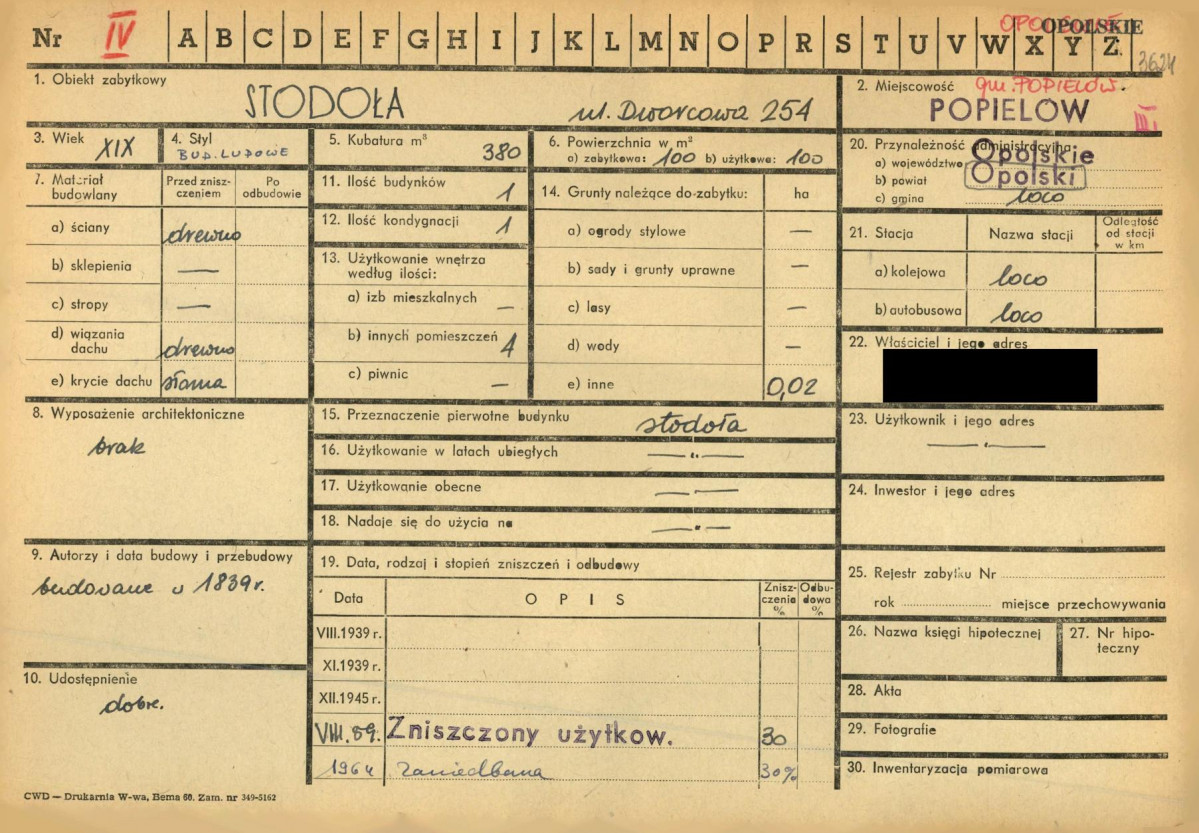 Nr IV A B C D E F G H I J K L M N O P R S T U V W X Y Z
OPOLSKIE
3624
1. Obiekt zabytkowy
STODOŁA ul. Dworcowa 254
2. Miejscowość gm. POPIELÓW.
POPIELÓW
III
3. Wiek XIX
4. Styl BUD. LUDOWE
5. Kubatura m³ 380
6. Powierzchnia w m²
a) zabytkowa: 100 b) użytkowa: 100
20. Przynależność administracyjna
a) województwo Opolskie
b) powiat Opolski
c) gmina loco
7. Materiał budowlany
Przed zniszczeniem
Po odbudowie
a) ściany drewno
b) sklepienia —
c) stropy —
d) wiązania dachu drewno
e) krycie dachu słoma
11. Ilość budynków 1
12. Ilość kondygnacji 1
13. Użytkowanie wnętrza według ilości:
a) izb mieszkalnych —
b) innych pomieszczeń 4
c) piwnic —
14. Grunty należące do zabytku: ha
a) ogrody stylowe —
b) sady i grunty uprawne —
c) lasy —
d) wody —
e) inne 0,02
21. Stacja
Nazwa stacji
Odległość od stacji w km
a) kolejowa loco
b) autobusowa loco
22. Właściciel i jego adres
8. Wyposażenie architektoniczne
brak
15. Przeznaczenie pierwotne budynku stodoła
16. Użytkowanie w latach ubiegłych —„—
17. Użytkowanie obecne — —
18. Nadaje się do użycia na —„—
23. Użytkownik i jego adres
—„—
24. Inwestor i jego adres
9. Autorzy i data budowy i przebudowy
budowane w 1839 r.
10. Udostępnienie
dobre.
19. Data, rodzaj i stopień zniszczeń i odbudowy
Data
OPIS
Zniszczenia %
Odbudowa %
VIII.1939 r.
XI.1939 r.
XII.1945 r.
VIII.59. Zniszczony użytkow. 30
1964 zaniedbana 30%
25. Rejestr zabytku Nr
rok miejsce przechowywania
26. Nazwa księgi hipotecznej
27. Nr hipoteczny
28. Akta
29. Fotografie
30. Inwentaryzacja pomiarowa
CWD — Drukarnia W-wa, Bema 60. Zam. nr 349-5162